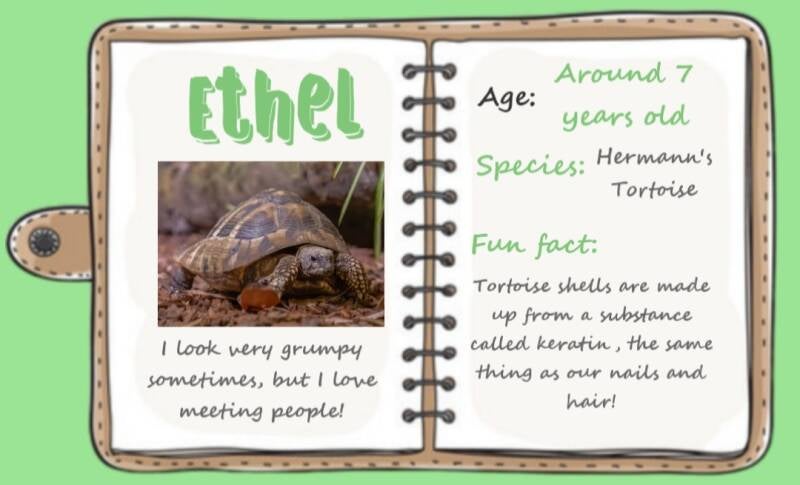 Ethel
I look very grumpy
sometimes, but I love
meeting people!
Age: Around 7
years old
Species: Hermann's
Tortoise
Fun fact:
Tortoise shells are made
up from a substance
called keratin , the same
thing as our nails and
hair!